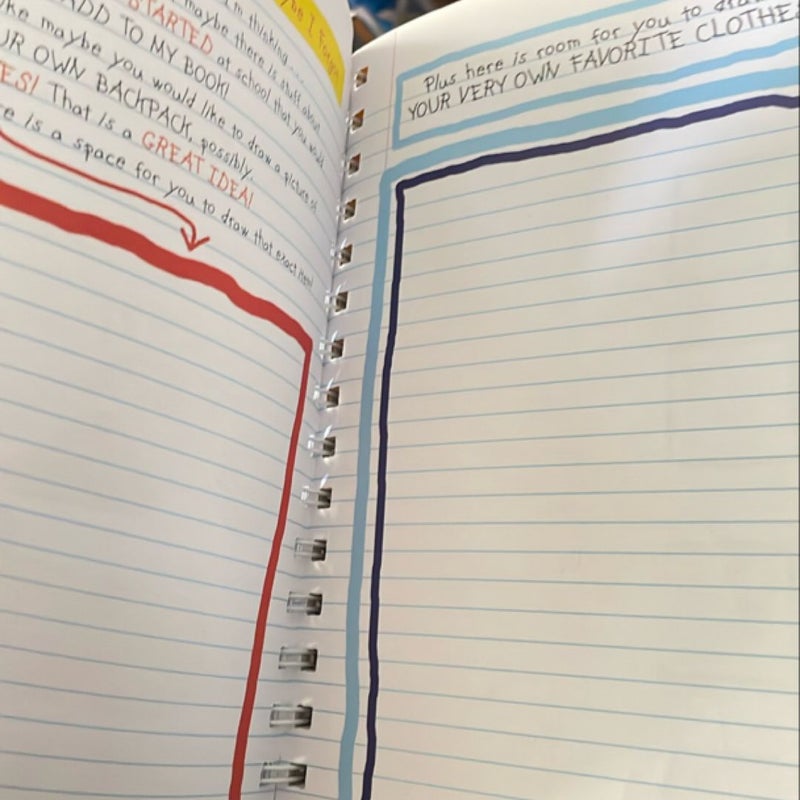 I'm thinking...
maybe there is stuff about
STARTED at school that you would
ADD TO MY BOOK!
maybe you would like to draw a picture of
OWN BACKPACK, possibly.
That is a GREAT IDEA!
is a space for you to draw that exact item!
Plus here is room for you to draw
YOUR VERY OWN FAVORITE CLOTHE